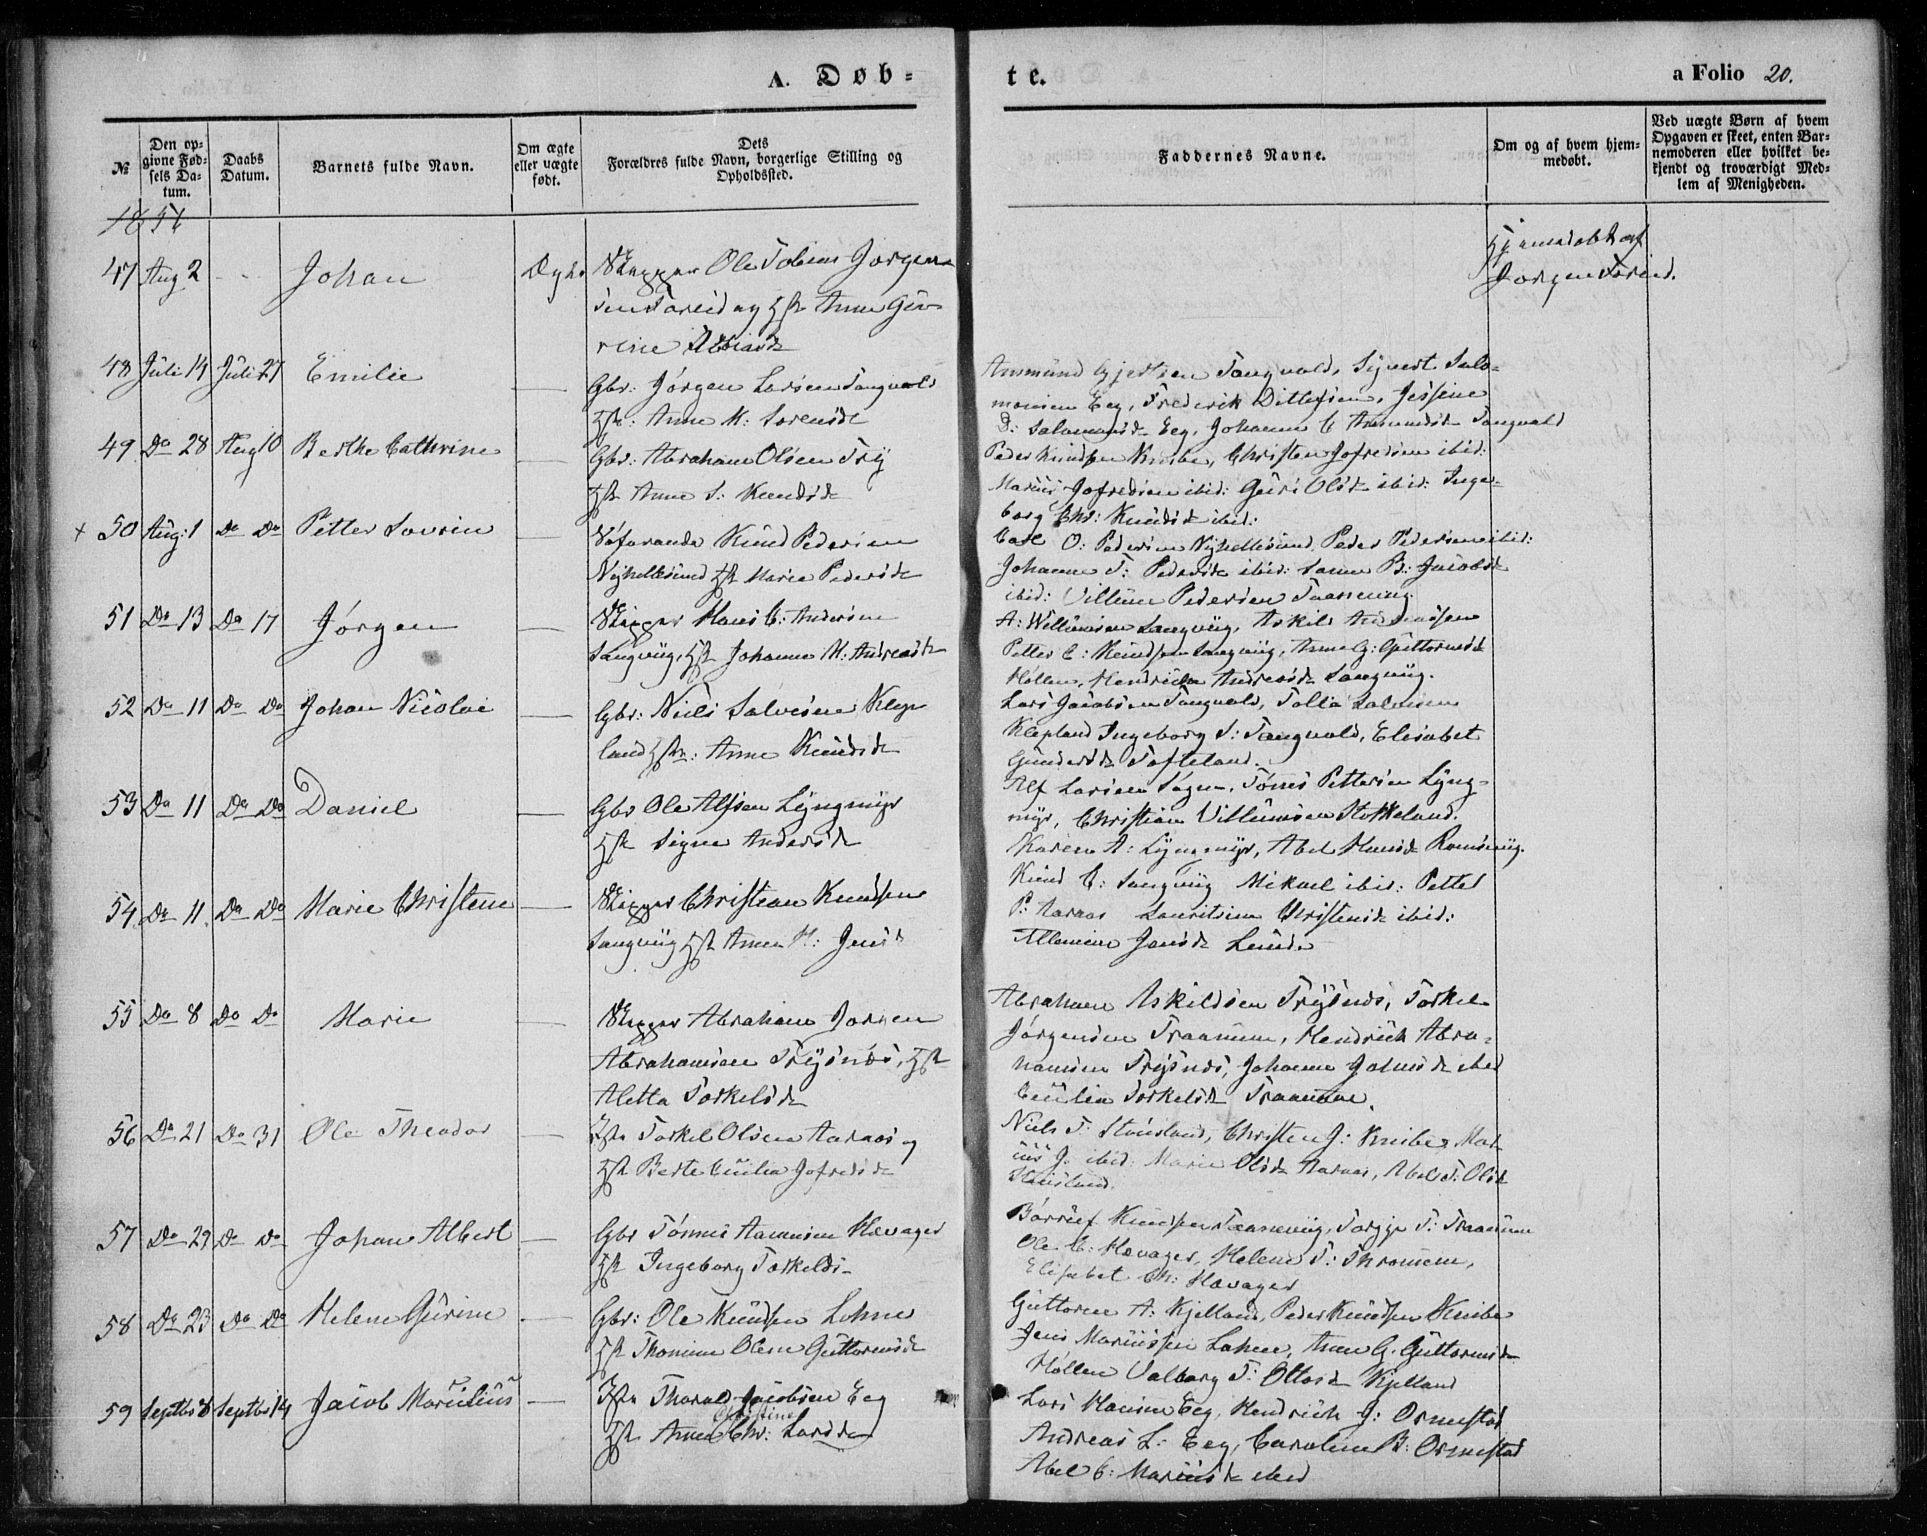 A. Døb-
te.
a Folio 20.
№
Den op-
givne Fød-
sels Da-
tum.
Daabs
Datum.
Barnets fulde Navn.
Om ægte
eller uægte
født.
Dets
Forældres fulde Navn, borgerlige Stilling og
Opholdssted.
Faddernes Navne.
Om og af hvem hjem-
medøbt.
Ved uægte Børn af hvem
Opgaven er skeet, enten Bar-
nemoderen eller hvilket be-
kjendt og troværdigt Med-
lem af Menigheden.
1851
47 Aug 2 Johan Ægte Skipper Ole Tobias Jørgen-
sen og Hst Anne Gu-
rine
Hjemmedøbt af
Jørgen
48 Juli 14 Juli 27 Emilie — Gbr: Jørgen Larsen Tangvald
Hst: Anne M: Sørensd
Ammund Gjertsen Tangvald, Sigvert Salo-
monsen Eeg, Frederik Ditlefsen, Jessine
D: Salomonsd Eeg, Johanne C Ammundsd Tangvald
49 Do 28 Aug 10 Berthe Cathrine — Gbr: Abraham Olsen Try
Hst Anne S: Knudsd
Peder Knudsen Knibe, Christen Jofredsen ibid:
Marius Jofredsen ibid: Guri Olsd ibid: Inge-
borg Chr: Knudsd ibid:
+ 50 Aug: 1 Do Do Petter Sovrin — Søfarende Knud Pedersen
Nyhellesund Hst Marie Pedersd
Carl O: Pedersen Nyhellesund, Peder Pedersen ibid:
Johanne T: Pedersd ibid: B: Jacobsd
ibid: Villum Pedersen
51 Do 13 Do 17 Jørgen — Skipper Hans C: Andersen
Langviig, Hst Johanne M: Andreasd
A: Willumsen Langviig, Askild
Petter C: Knudsen Langviig, Anne G: Guttormsd
Høllen, Andreasd Langviig.
52 Do 11 Do Do Johan Nicolai — Gbr: Niels Salvesen Klep-
land Hst: Anne Knudsd
Lars Jacobsen Tangvald, Salvesen
Klepland Ingeborg S: Tangvald, Elisabet
Gundersd Tofteland.
53 Do 11 Do Do Daniel — Gbr Ole Alfsen Lyngmyr
Hst Signe Andersd
Alf Larsen Søgne, Tønnes Pettersen Lyng-
myr, Christian Villumsen Stokkeland.
Karen A: Lyngmyr, Abel Hansd
54 Do 11 Do Do Marie Christene — Skipper Christian Knudsen
Langviig Hst Anne M: Jensd
Knud C: Langviig Mikael ibid: Petter
P: Aaraas Christensd ibid:
Jensd Lunde
55 Do 8 Do Do Marie — Skipper Abraham Jørgen
Abrahamsen Trysnæs, Hst
Aletta Torkelsd
Abraham Askildsen Trysnes, Torkel
Jørgensen Hendrich Abra-
hamsen Trysnes, Johanne ibid
Cecilia Torkelsd
56 Do 21 Do 31 Ole Theodor — Torkel Olsen Aaraas og
Hst Berte Cecilia Jofredsd
Niels T: Stausland, Christen J: Knibe, Mar-
ius J. ibid: Marie Olsd Aaraas, Abel T: Olsd
Stausland.
57 Do 29 Do Do Johan Albert — Gbr Tønnes Aanensen Høvager
Hst Ingeborg Torkelsd
Knudsen Torgje T:
Ole C: Høvager, Helene T:
Elisabet Ch: Høvager
58 Do 23 Do Do Helene Gurine — Gbr: Ole Knudsen Lohne
Hst Thomine Olene Guttormsd
Guttorm A: Kjelland, Peder Knudsen Knibe
Jens Mariussen Lohne, Anne G. Guttormsd
Høllen Valborg T: Ottosd Kjelland
59 Septbr 8 Septbr 14 Jacob Marselius — Jacobsen Eeg
Christine
Hst Anne Chr: Larsd
Lars Hansen Eeg, Hendrich J: Ormestad
Andreas L: Eeg, Caroline B: Ormestad
Abel C: Mariusd ibid